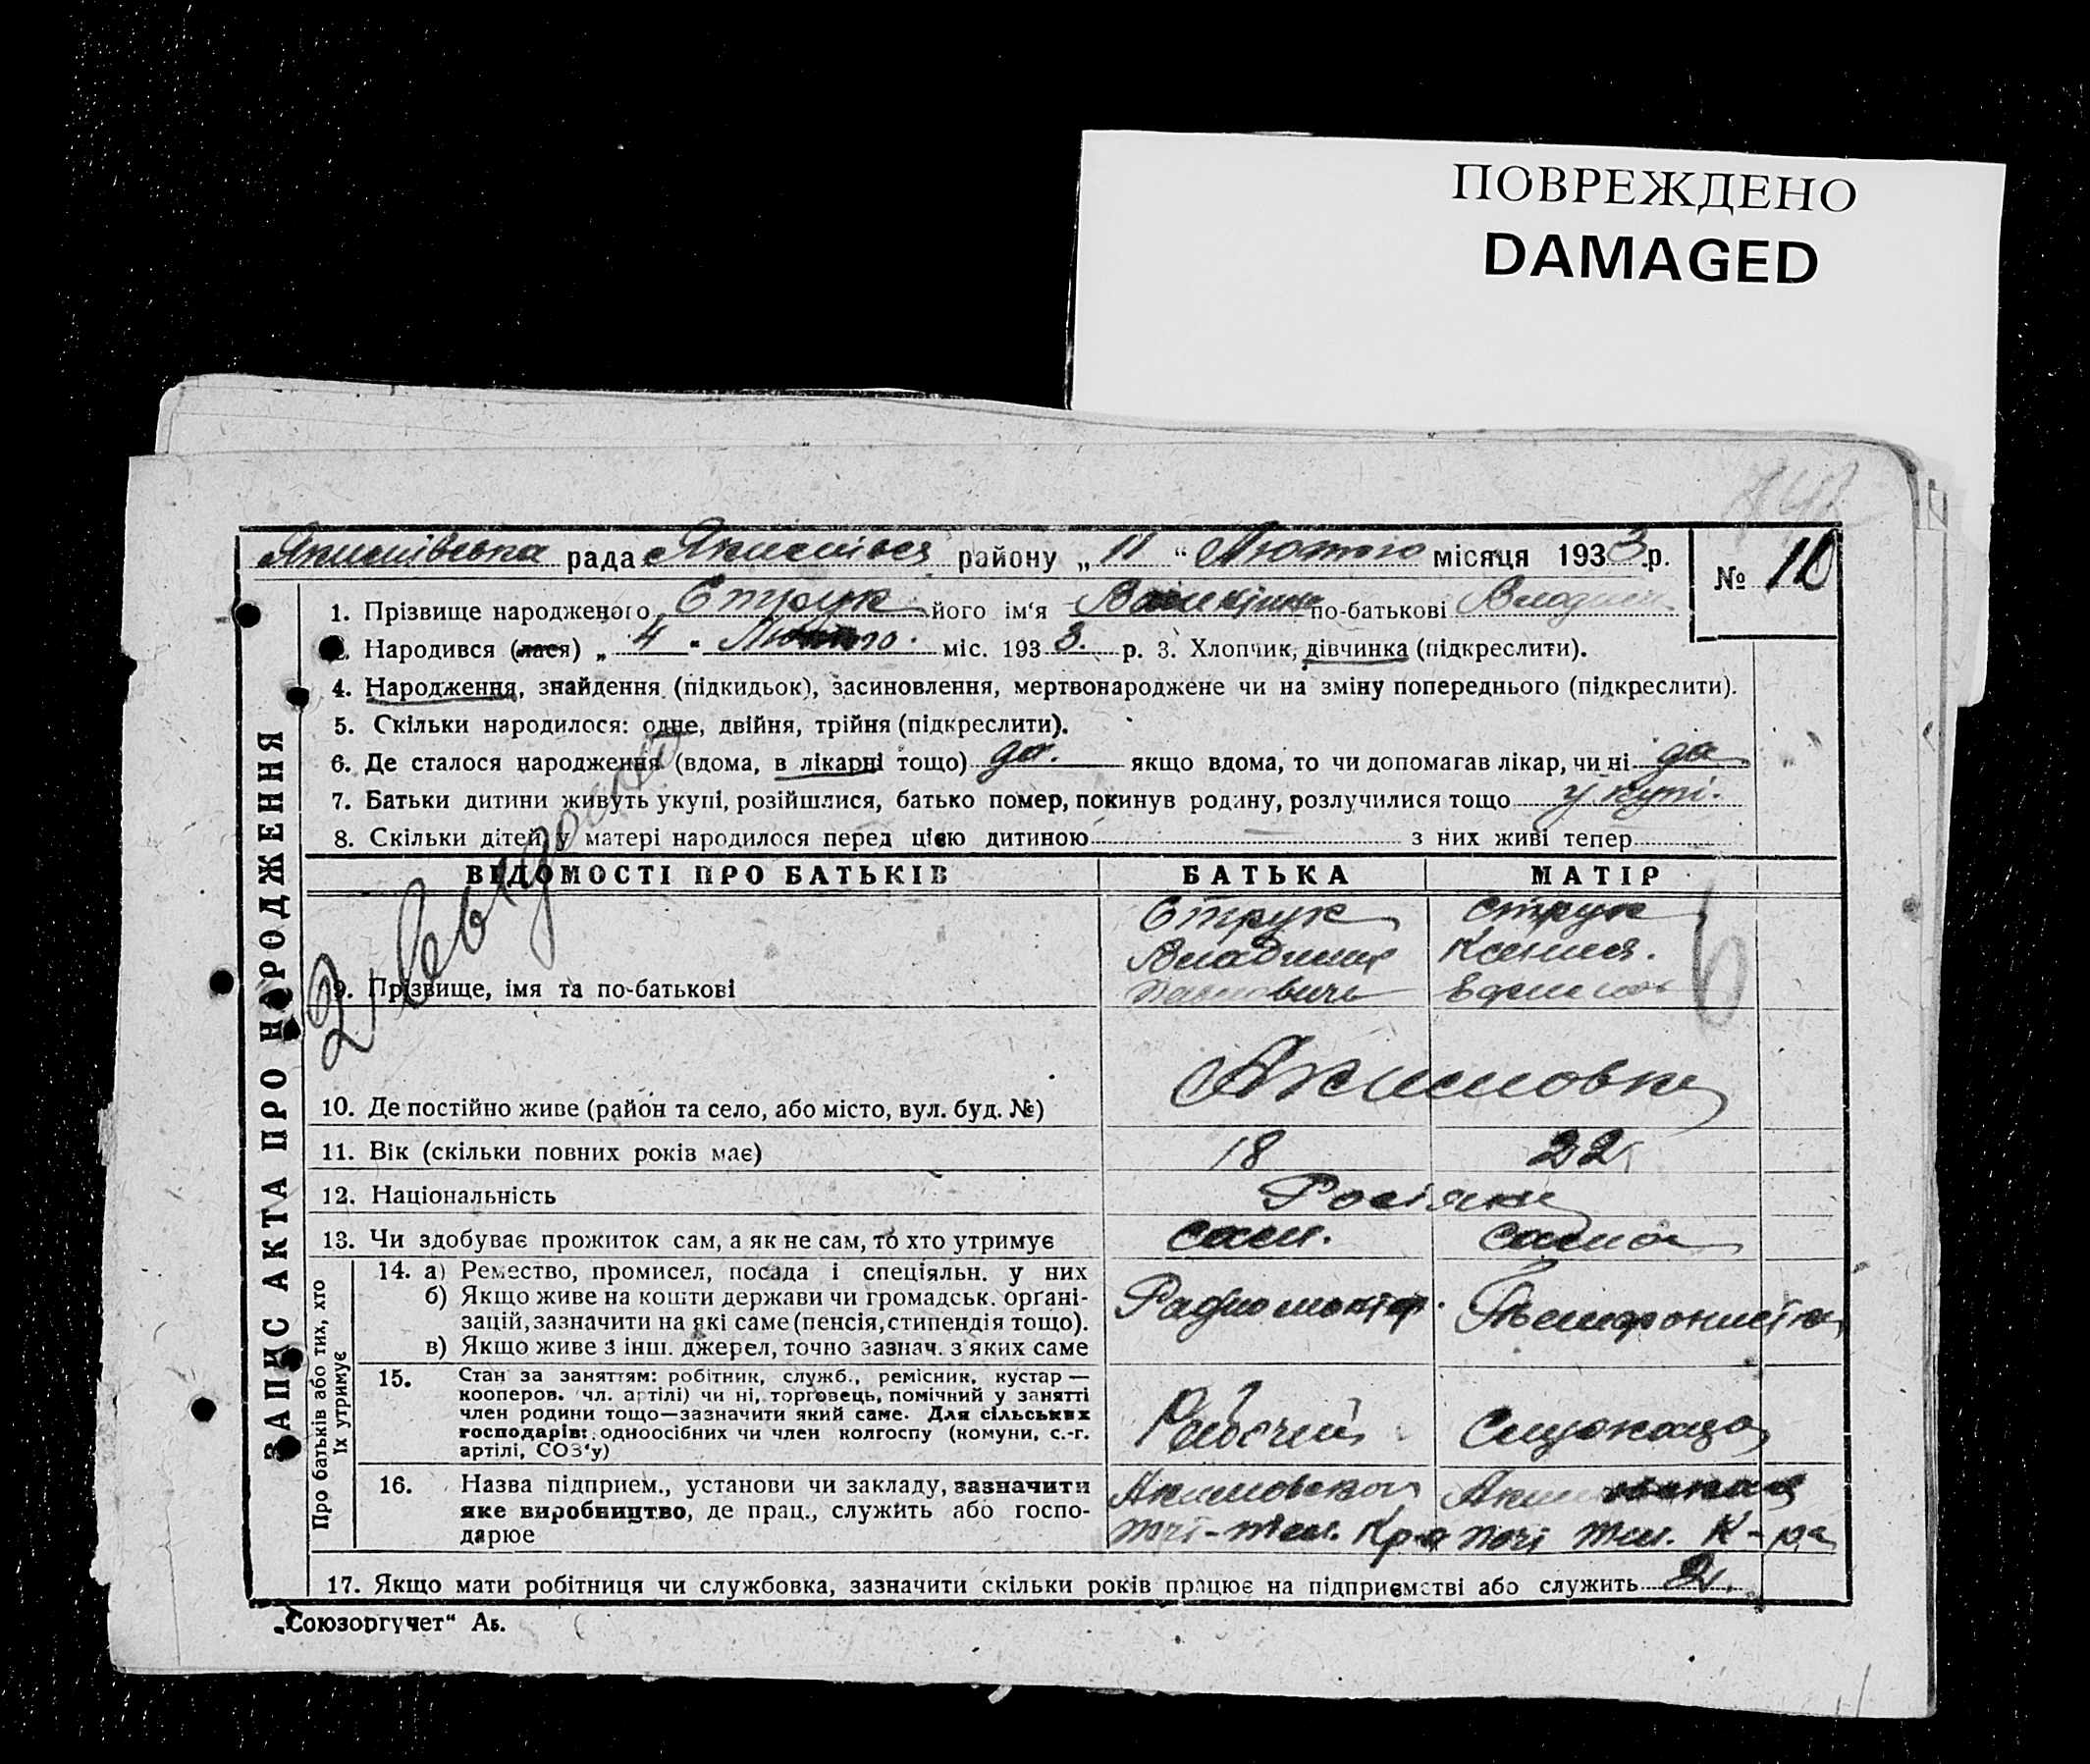 ПОВРЕЖДЕНО
DAMAGED
Якимівська рада Якимівся району „ 11 “ Лютого місяця 1933 р.
№ 10
1. Прізвище народженого Струк його ім'я по-батькові
2. Народився (лася) „ 4 " Лютого. міс. 193 3. р. 3. Хлопчик, дівчинка (підкреслити).
4. Народження, знайдення (підкидьок), засиновлення, мертвонароджене чи на зміну попереднього (підкреслити).
5. Скільки народилося: одне, двійня, трійня (підкреслити).
6. Де сталося народження (вдома, в лікарні тощо) да. якщо вдома, то чи допомагав лікар, чи ні да
7. Батьки дитини живуть укупі, розійшлися, батько помер, покинув родину, розлучилися тощо у купі.
8. Скільки дітей у матері народилося перед цією дитиною з них живі тепер
ВІДОМОСТІ ПРО БАТЬКІВ БАТЬКА МАТІР
Струк Струк
Владимир Ксения.
Павлович
9. Прізвище, імя та по-батькові
Акимовка
10. Де постійно живе (район та село, або місто, вул. буд. №)
11. Вік (скільки повних років має) 18 22
12. Національність Росіяне
13. Чи здобуває прожиток сам, а як не сам, то хто утримує сам. сама
14. а) Ремество, промисел, посада і спеціяльн. у них
б) Якщо живе на кошти держави чи громадськ. орґані-
зацій, зазначити на які саме (пенсія, стипендія тощо).
в) Якщо живе з інш. джерел, точно зазнач. з яких саме
Радиомонтер. Телефонистка
15. Стан за заняттям: робітник, служб., ремісник, кустар —
кооперов. чл. артілі) чи ні, торговець, помічний у занятті
член родини тощо—зазначити який саме. Для сільських
господарів: одноосібних чи член колгоспу (комуни, с.-г.
артілі, СОЗ'у)
Рабочий Служаща
16. Назва підприєм., установи чи закладу, зазначити
яке виробництво, де прац., служить або госпо-
дарюе
Акимовская Акимовская
почт-тел. К-ра почт тел. К-ра
17. Якщо мати робітниця чи службовка, зазначити скільки років працює на підприємстві або служить 2.
ЗАПИС АКТА ПРО НАРОДЖЕННЯ
Про батьків або тих, хто
їх утримує
„Союзоргучет“ Аб.